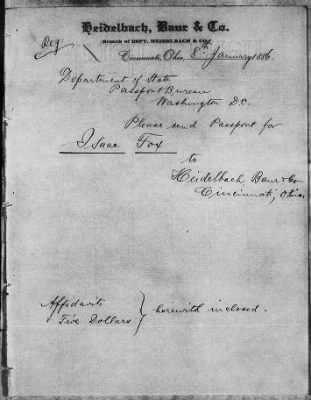 Heidelbach, Baur & Co.
Branch of ESPY, HEIDELBACH & CO.
Cincinnati, Ohio, 8th January 1886
Department of State
Passport Bureau
Washington D.C.
Please send Passport for
Isaac Fox
to
Heidelbach, Baur & Co
Cincinnati, Ohio.
Affidavits
Five Dollars
herewith inclosed.